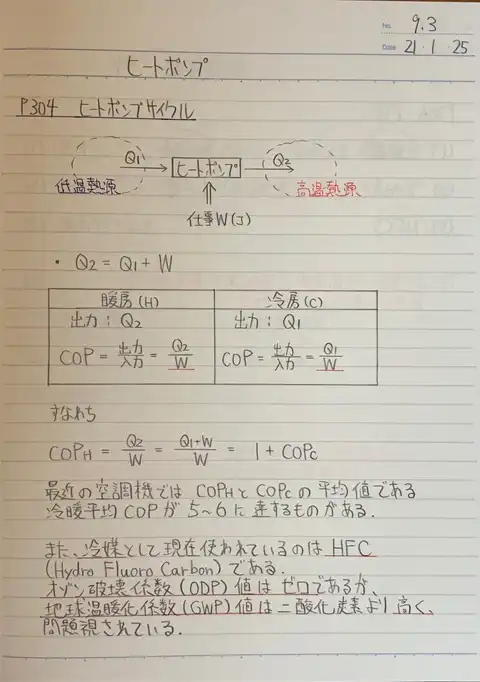 No. 9.3
Date 21・1・25
ヒートポンプ
P304 ヒートポンプサイクル
Q1 ヒートポンプ Q2
低温熱源 高温熱源
仕事W(J)
・ Q2 = Q1 + W
暖房(H) 冷房(C)
出力：Q2 出力：Q1
COP = 出力/入力 = Q2/W COP = 出力/入力 = Q1/W
すなわち
COPH = Q2/W = Q1+W/W = 1 + COPc
最近の空調機では COPHとCOPcの平均値である
冷暖平均COPが5~6に達するものがある.
また、冷媒として現在使われているのはHFC
(Hydro Fluoro Carbon)である.
オゾン破壊係数(ODP)値はゼロであるが、
地球温暖化係数(GWP)値は二酸化炭素より高く、
問題視されている.